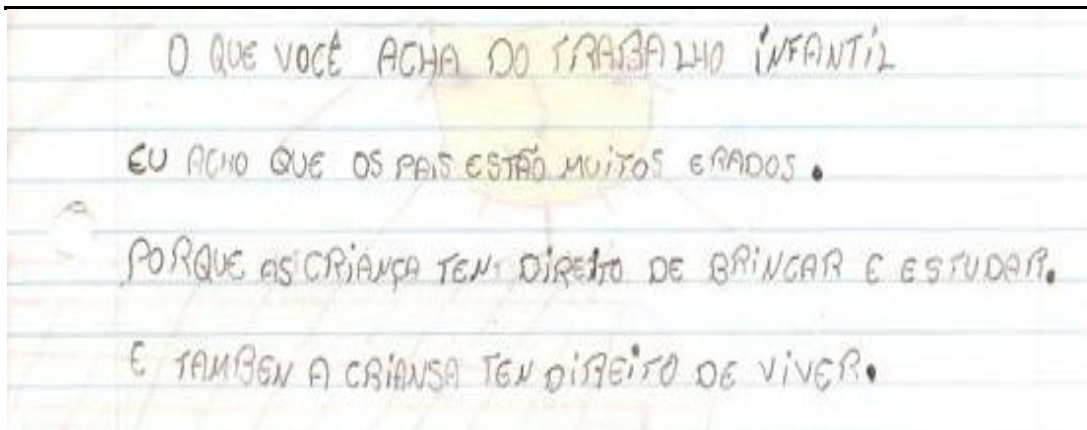 O QUE VOCÊ ACHA DO TRABALHO INFANTIL
EU ACHO QUE OS PAIS ESTÃO MUITOS ERADOS.
PORQUE AS CRIANÇA TEN DIREITO DE BRINCAR E ESTUDAR.
E TAMBEN A CRIANSA TEN DIREITO DE VIVER.